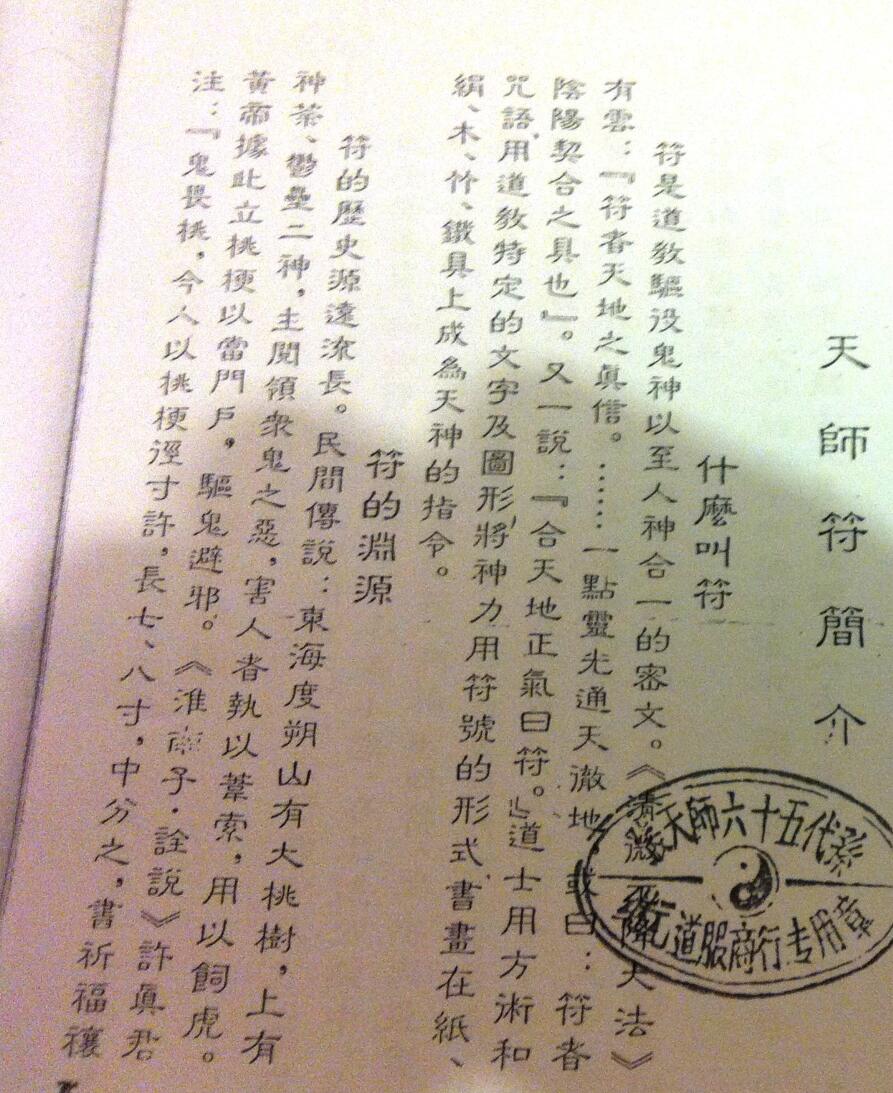 天師符簡介
什麼叫符
符是道教驅役鬼神以至人神合一的審文。《清微降大法》
有雲：『符者天地之眞信。……一點靈光通天徹地，或曰：符者
陰陽契合之具也』。又一說：『合天地正氣曰符。』道士用方術和
咒語，用道教特定的文字及圖形，將神力用符號的形式書畫在紙、
絹、木、竹、鐵具上成為天神的指令。
符的淵源
符的歷史源遠流長。民間傳說：東海度朔山有大桃樹，上有
神荼、鬱壘二神，主閱領衆鬼之惡，害人者執以葦索，用以飼虎。
黃帝據此立桃梗以當門戶，驅鬼避邪。《淮南子·詮說》許眞君
注：『鬼畏桃，今人以桃梗徑寸許，長七、八寸，中分之，書祈福禳
天師六十五代孫
道服商行专用章